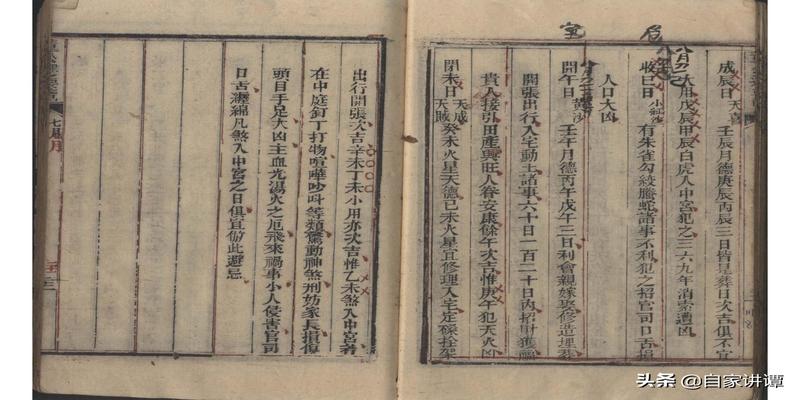 成辰日 天喜 壬辰月德庚辰丙辰三日皆是葬日次吉俱不宜
大用戊辰甲辰白虎入中宮犯之三六九年消索遭凶
收巳日 小紅沙 有朱雀勾絞螣蛇諸事不利犯之招官司口舌損
人口大凶
開午日 黃沙 壬午月德丙午戊午三日利會親嫁娶修造埋葬
開張出行入宅動土諸事六十日一百二十日內招財獲福
貴人接引田產興旺人眷安康餘午次吉惟庚午犯天火凶
閉未日 天成 天賊 癸未火星天德己未火星宜修理入宅定磉拴架
出行開張次吉辛未丁未小用亦次吉惟乙未煞入中宮若
在中庭釘丁打物喧嘩吵叫等類驚動神煞刑妨家長損傷
頭目手足大凶主血光湯火之厄飛來禍事小人侵害官司
口舌瀝綿凡煞入中宮之日俱宜倣此避忌
头条 @自家讲谭